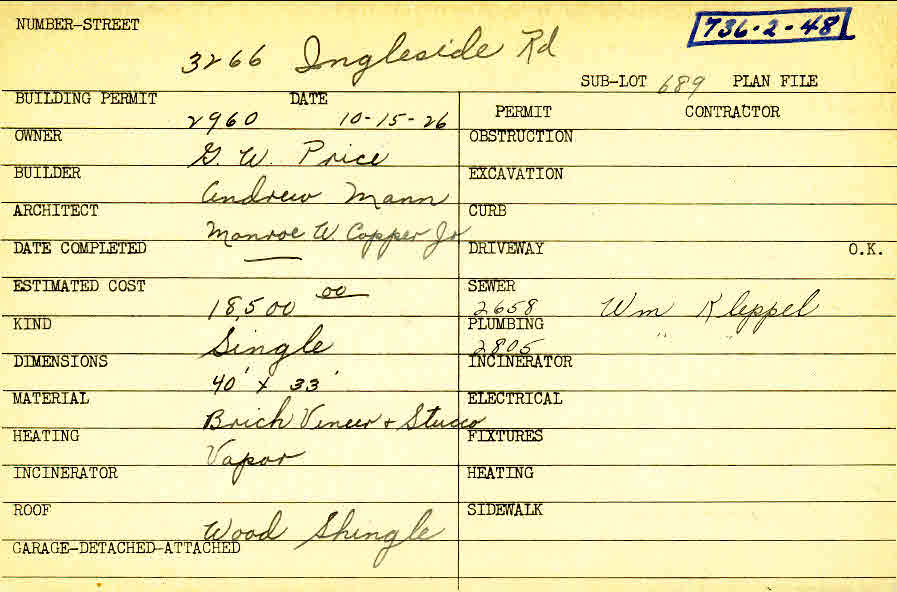 NUMBER-STREET
736-2-48
3266 Ingleside Rd
SUB-LOT 689 PLAN FILE
BUILDING PERMIT DATE
2960 10-15-26
PERMIT CONTRACTOR
OWNER
G. W. Price
OBSTRUCTION
BUILDER
Andrew Mann
EXCAVATION
ARCHITECT
Monroe W. Copper Jr
CURB
DATE COMPLETED
—
DRIVEWAY O.K.
ESTIMATED COST
18,500 00
SEWER
2658 Wm Kleppel
KIND
Single
PLUMBING
2805 " "
DIMENSIONS
40' x 33'
INCINERATOR
MATERIAL
Brick Veneer + Stucco
ELECTRICAL
HEATING
Vapor
FIXTURES
INCINERATOR
HEATING
ROOF
Wood Shingle
SIDEWALK
GARAGE-DETACHED-ATTACHED